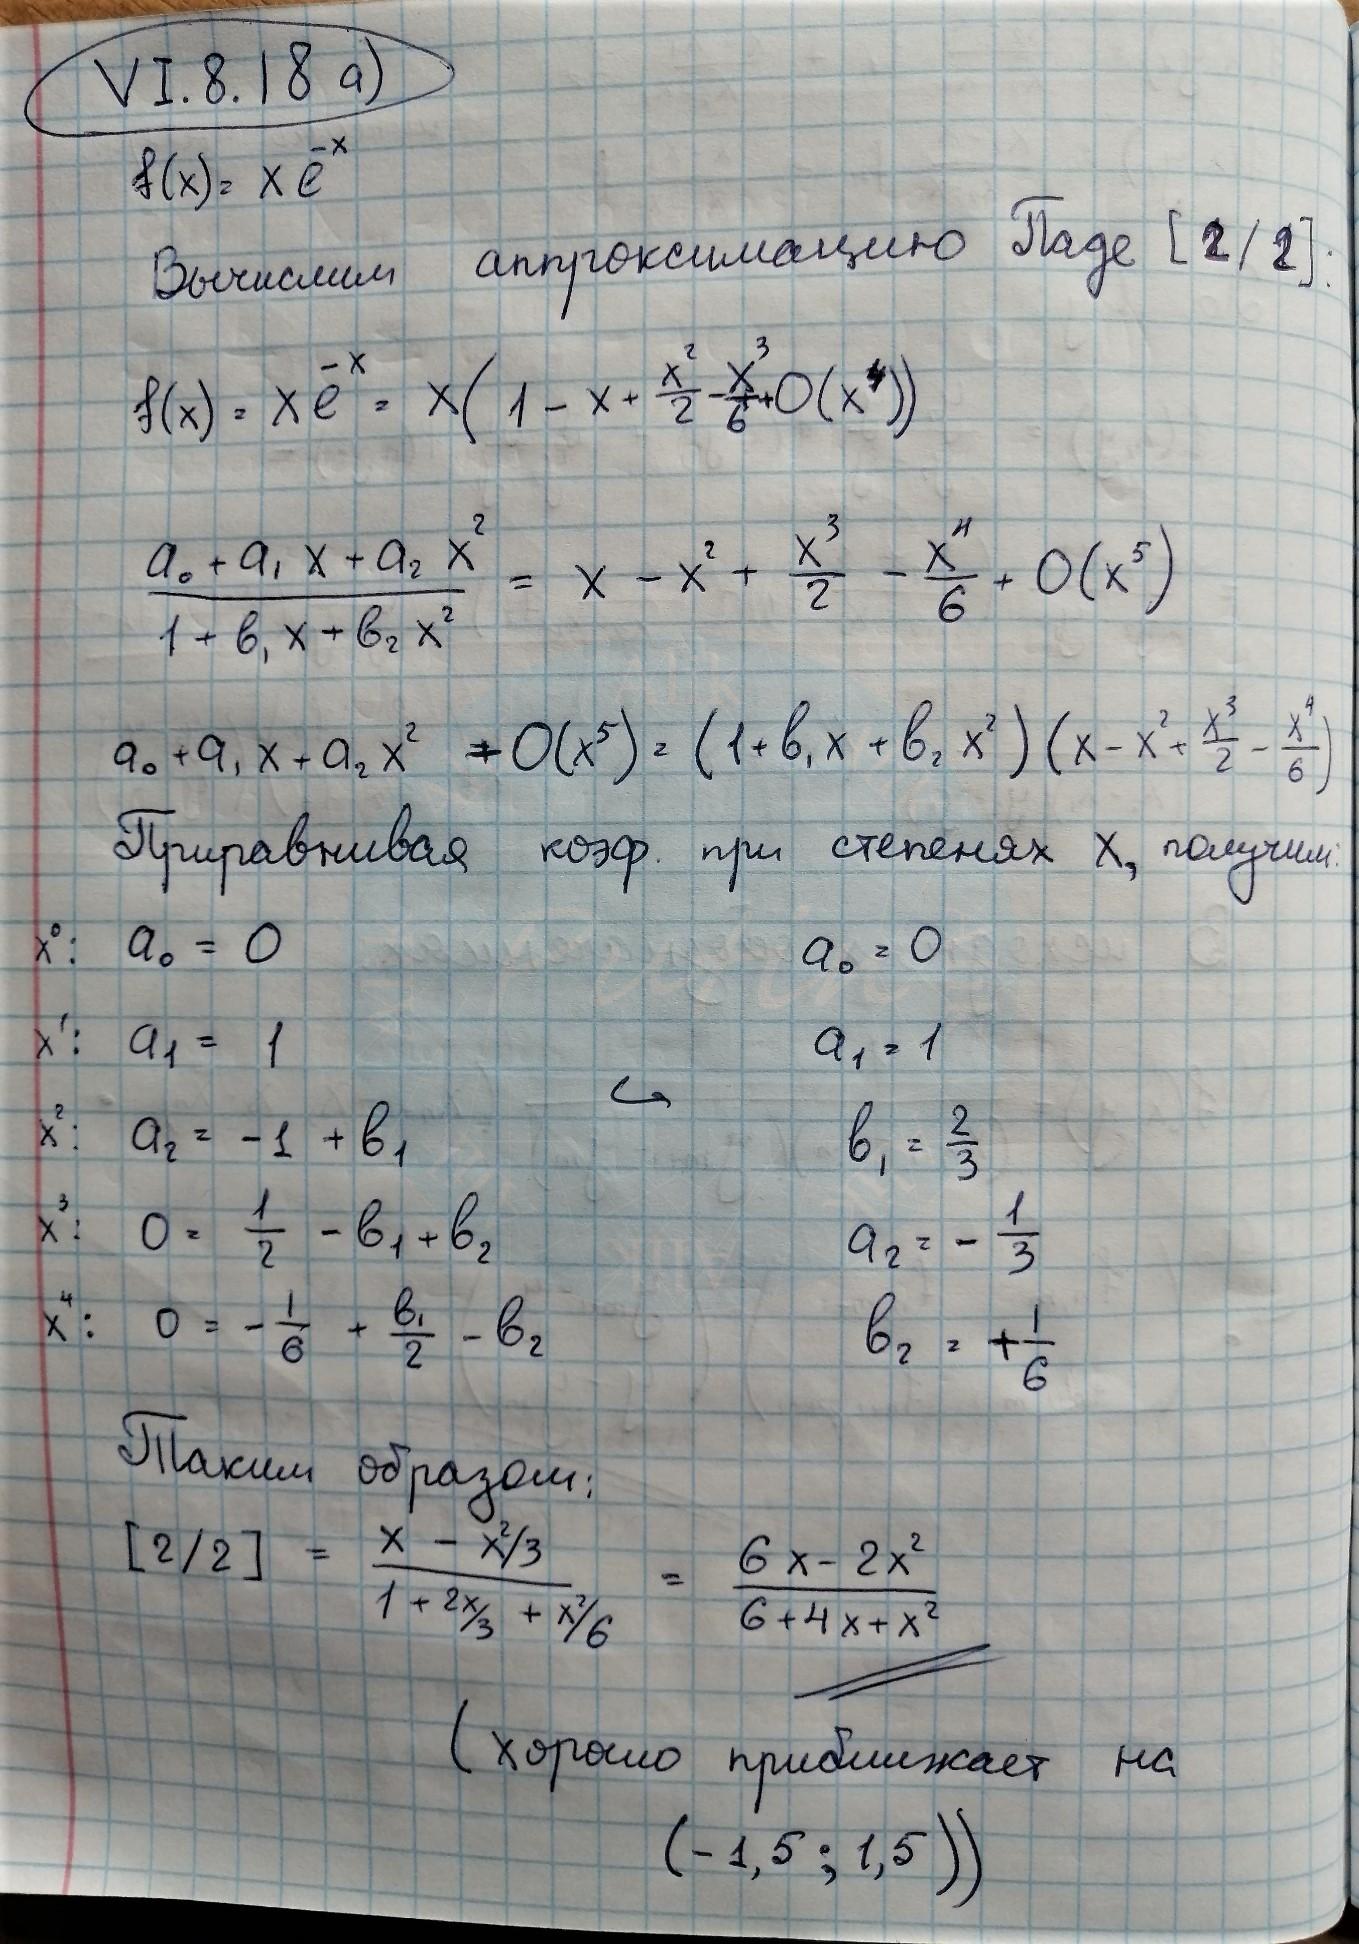 VI.8.18 а)
f(x) = x e^{-x}
Вычислим аппроксимацию Паде [2/2]:
f(x) = x e^{-x} = x(1 - x + x^2/2 - x^3/6 + O(x^4))
(a₀ + a₁ x + a₂ x^2)/(1 + b₁ x + b₂ x^2) = x - x^2 + x^3/2 - x^4/6 + O(x^5)
a₀ + a₁ x + a₂ x^2 + O(x^5) = (1 + b₁ x + b₂ x^2)(x - x^2 + x^3/2 - x^4/6)
Приравнивая коэф. при степенях x, получим:
x^0: a₀ = 0 a₀ = 0
x^1: a₁ = 1 a₁ = 1
↪
x^2: a₂ = -1 + b₁ b₁ = 2/3
x^3: 0 = 1/2 - b₁ + b₂ a₂ = - 1/3
x^4: 0 = - 1/6 + b₁/2 - b₂ b₂ = + 1/6
Таким образом:
[2/2] = (x - x^2/3)/(1 + 2x/3 + x^2/6) = (6x - 2x^2)/(6 + 4x + x^2)
(хорошо приближает на
(-1,5; 1,5))